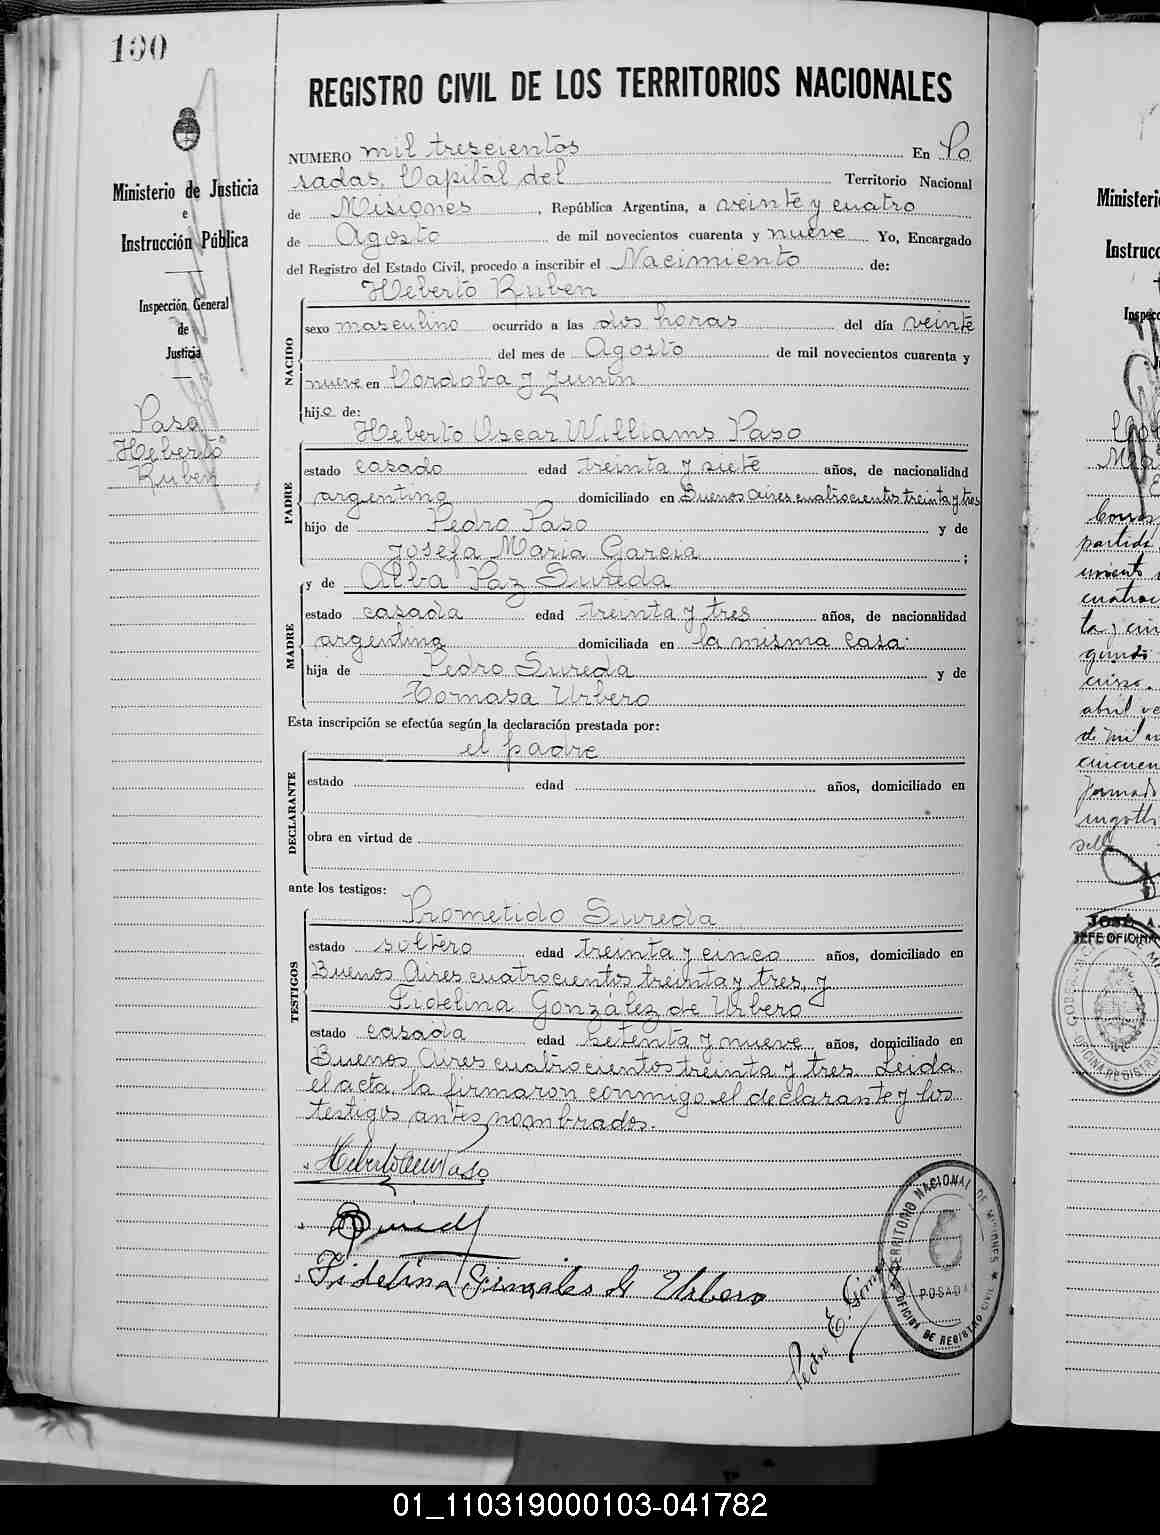 100
REGISTRO CIVIL DE LOS TERRITORIOS NACIONALES
Ministerio de Justicia
e
Instrucción Pública
Inspección General
de
Justicia
Paso
Heberto
Ruben
NUMERO mil trescientos En Po
sadas, Capital del Territorio Nacional
de Misiones, República Argentina, a veinte y cuatro
de Agosto de mil novecientos cuarenta y nueve Yo, Encargado
del Registro del Estado Civil, procedo a inscribir el Nacimiento de:
Heberto Ruben
NACIDO
sexo masculino ocurrido a las dos horas del día veinte
del mes de Agosto de mil novecientos cuarenta y
nueve en Cordoba y Junin
hijo de:
Heberto Oscar Williams Paso
PADRE
estado casado edad treinta y siete años, de nacionalidad
argentina domiciliado en Buenos Aires cuatrocientos treinta y tres
hijo de Pedro Paso y de
Josefa Maria Garcia ;
y de Alba Paz Sureda
MADRE
estado casada edad treinta y tres años, de nacionalidad
argentina domiciliada en la misma casa:
hija de Pedro Sureda y de
Tomasa Urbero
Esta inscripción se efectúa según la declaración prestada por:
el padre
DECLARANTE
estado edad años, domiciliado en
obra en virtud de
ante los testigos:
Prometido Sureda
TESTIGOS
estado soltero edad treinta y cinco años, domiciliado en
Buenos Aires cuatrocientos treinta y tres, y
Fidelina González de Urbero
estado casada edad setenta y nueve años, domiciliado en
Buenos Aires cuatrocientos treinta y tres Leida
el acta, la firmaron conmigo el declarante y los
testigos antes nombrados.
Fidelina Gonzales de Urbero
Pedro E.
TERRITORIO NACIONAL DE MISIONES
POSADAS
OFICINA DE REGISTRO CIVIL
Ministeri
Instrucc
Inspecc
partida
cuatroc
ta y cin
abril ve
de mil no
cincuen
JOSÉ A.
JEFE OFICINA
01_110319000103-041782